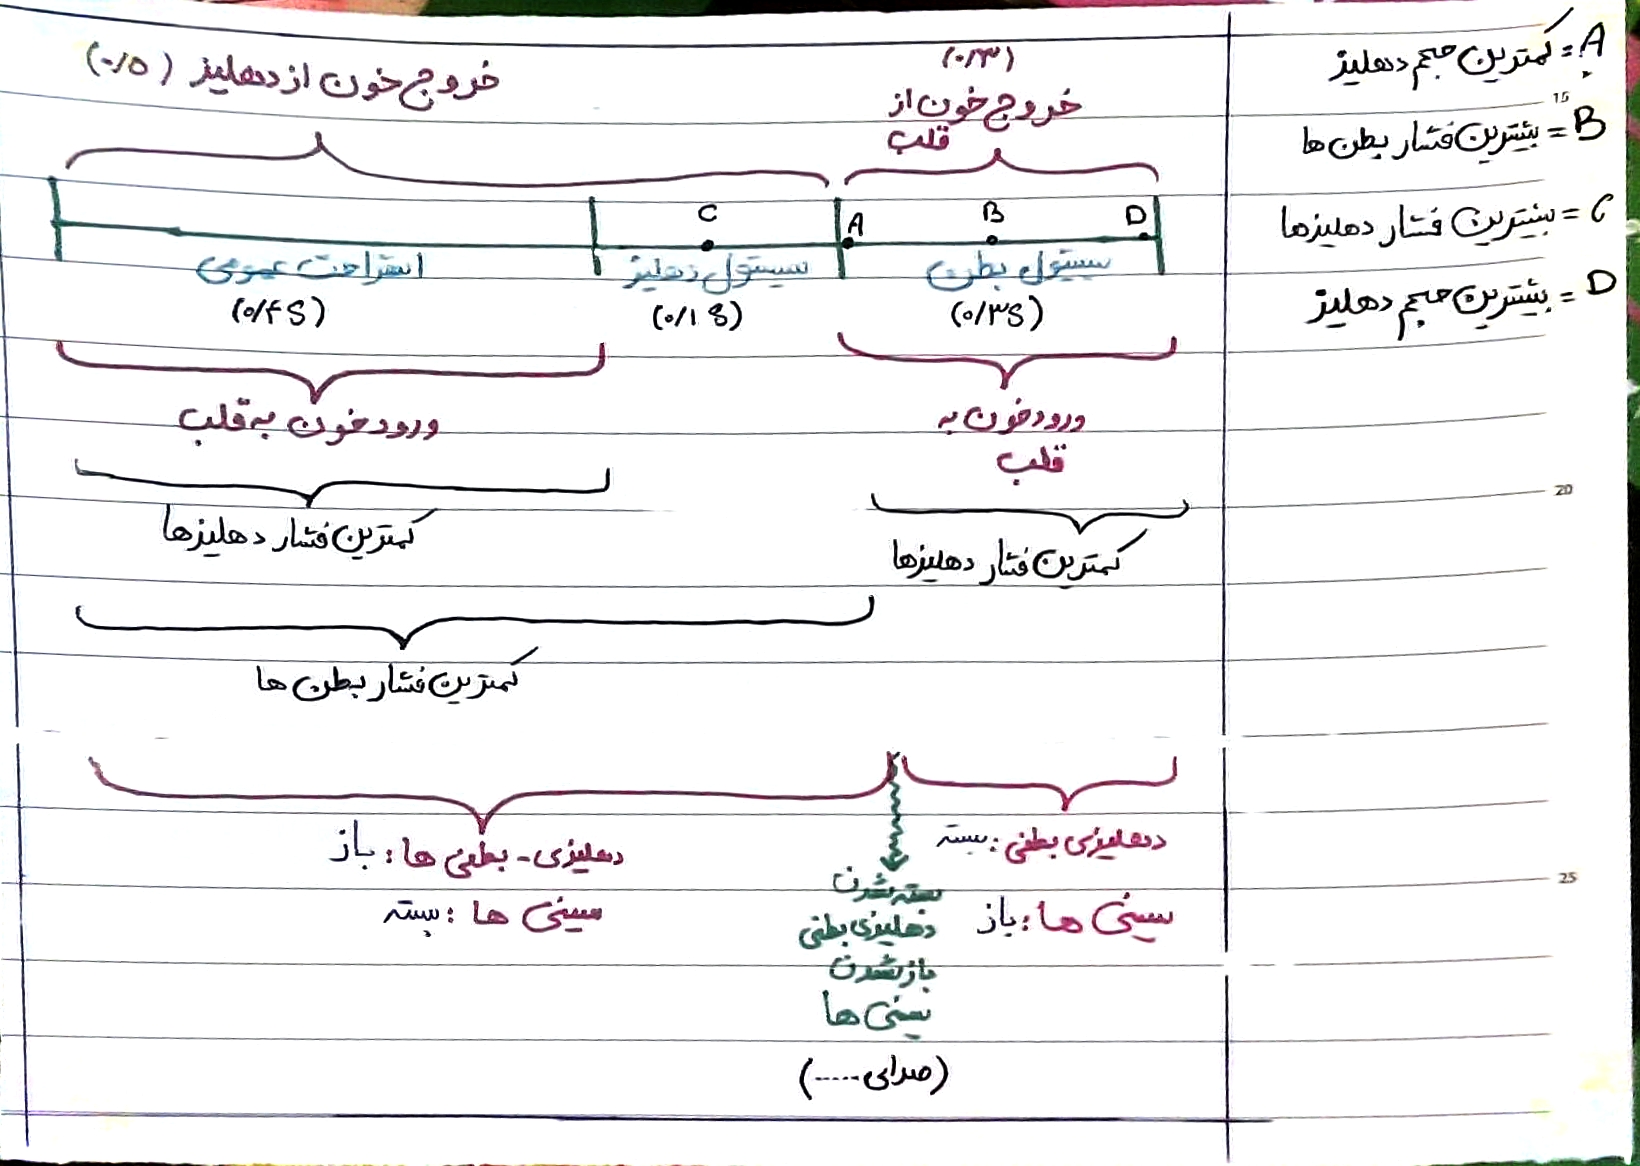 A = کمترین حجم دهلیز
B = بیشترین فشار بطن ها
C = بیشترین فشار دهلیزها
D = بیشترین حجم دهلیز
15
20
25
(۰/۳)
خروج خون از
قلب
خروج خون از دهلیز (۰/۵)
D B A C
سیستول بطن
(۰/۳S)
سیستول دهلیز
(۰/۱S)
استراحت عمومی
(۰/۴S)
ورود خون به
قلب
ورود خون به قلب
کمترین فشار دهلیزها
کمترین فشار دهلیزها
کمترین فشار بطن ها
دهلیزی بطنی: بسته
سینی ها: باز
دهلیزی - بطنی ها: باز
سینی ها: بسته
بسته شدن
دهلیزی بطنی
باز شدن
سینی ها
(صدای .....)